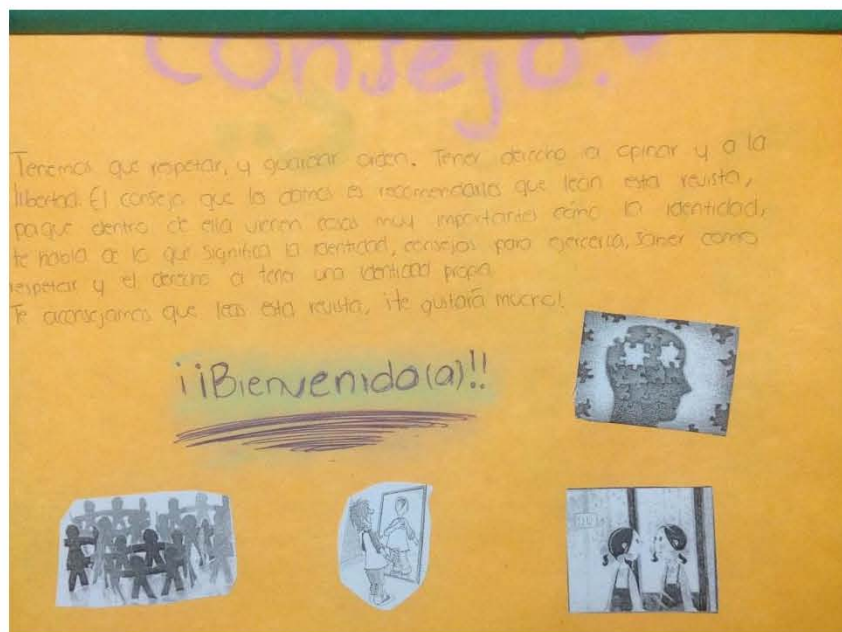 Consejo.
Tenemos que respetar, y guardar orden. Tener derecho a opinar y a la
libertad. El consejo que les damos es recomendarles que lean esta revista,
porque dentro de ella vienen cosas muy importantes cómo la identidad,
te habla de lo que significa la identidad, consejos para ejercerla, saber como
respetar y el derecho a tener una identidad propia.
Te aconsejamos que leas esta revista, ¡te gustará mucho!
¡¡Bienvenido(a)!!